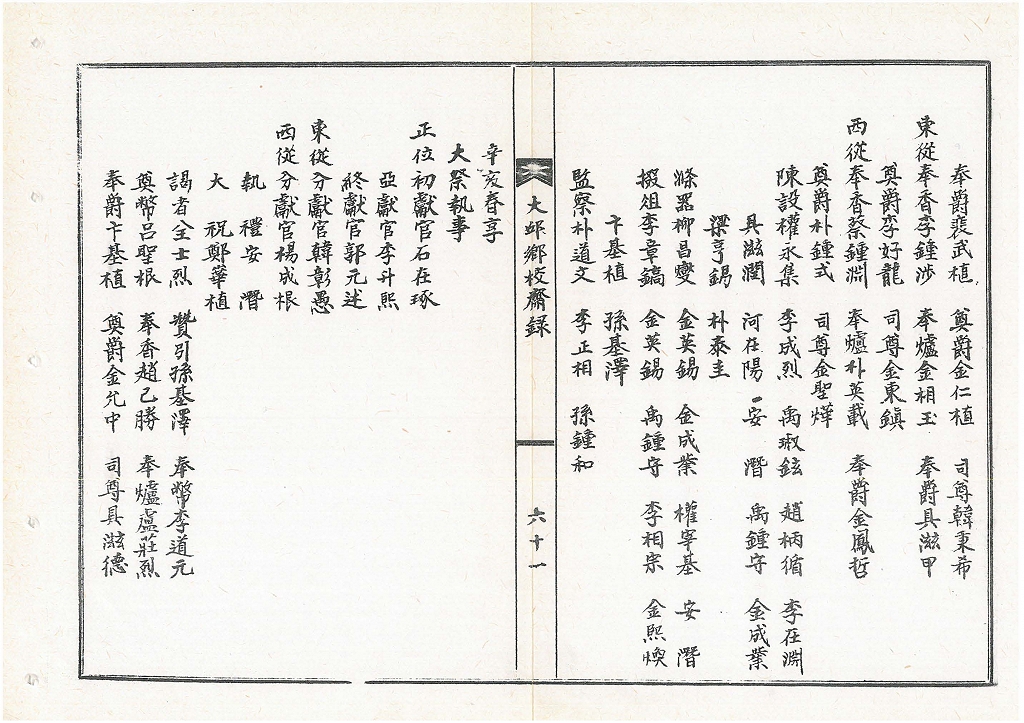 奉爵裴武植 奠爵金仁植 司尊韓秉希
東從奉香李鍾涉 奉爐金相玉 奉爵具滋甲
奠爵李好龍 司尊金東鎮
西從奉香蔡鍾淵 奉爐朴英載 奉爵金鳳哲
奠爵朴鍾式 司尊金聖燁
陳設權永集 李成烈 禹琡鉉 趙柄循 李在淵
具滋潤 河在陽 安潛 禹鍾守 金成業
梁亨錫 朴泰圭
滌器柳昌燮 金英錫 金成業 權寧基 安潛
掇俎李章鎬 金英錫 禹鍾守 李相宗 金熙煥
卞基植 孫基澤
監察朴道文 李正相 孫鍾和
大邱鄉校齋錄
六十一
辛亥春享
大祭執事
正位初獻官石在琢
亞獻官李斗熙
終獻官郭元述
東從分獻官韓彰愚
西從分獻官楊成根
執禮安潛
大祝鄭華植
謁者全士烈 贊引孫基澤 奉幣李道元
奠幣呂聖根 奉香趙己勝 奉爐盧莊烈
奉爵卞基植 奠爵金允中 司尊具滋德